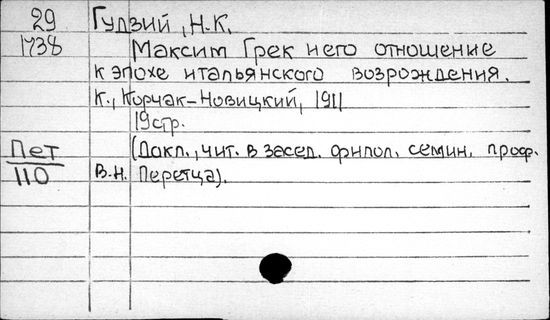 29 Гудзий, Н.К.
1738 Максим Грек и его отношение
к эпохе итальянского возрождения.
К., Корчак-Новицкий, 1911
19 стр.
Пет (Докл., чит. в засед. филол. семин. проф.
110 В.Н. Перетца).